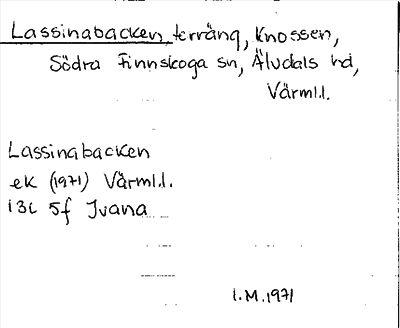 Lassinabacken, terräng, Knossen,
Södra Finnskoga sn, Älvdals hd,
Värml.l.
Lassinabacken
ek (1971) Värml.l.
13c 5f Jvana
I.M. 1971